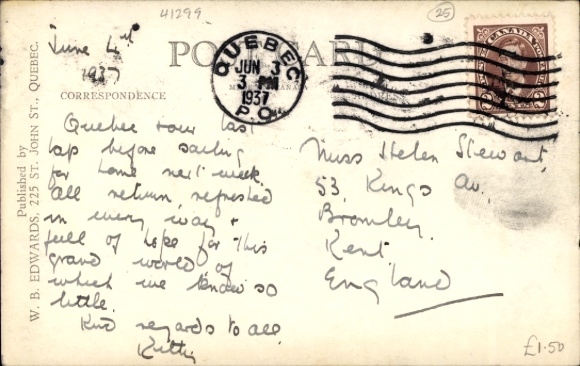 41299
25
June 4th
1937
POST CARD
QUEBEC
JUN 3
3 PM
1937
P.Q.
CANADA
CORRESPONDENCE
Published by
W. B. EDWARDS, 225 ST. JOHN ST., QUEBEC.
Quebec our last
lap before sailing
for home next week.
All return refreshed
in every way &
full of hope for this
grand world of
which we know so
little.
Kind regards to all
Miss Helen Stewart,
53, Kings Av,
Bromley,
Kent
England
£1.50